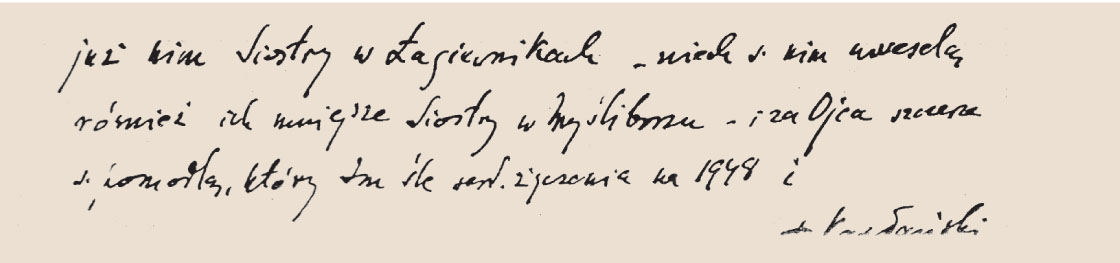 już nim Siostry w Łagiewnikach - niech s. nim uweselą
również ich mniejsze Siostry w Myśliborzu - i za Ojca szczerze
s. pomodlą, który Im śle serd. życzenia na 1948 i